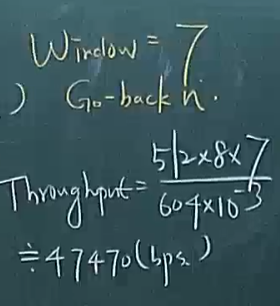 Window = 7
) Go-back n.
Throughput = 512×8×7 / 604×10⁻³
≒ 47470 (bps.)